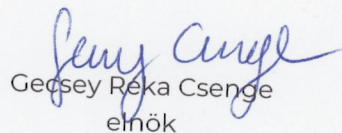 Gecsey Réka Csenge
elnök